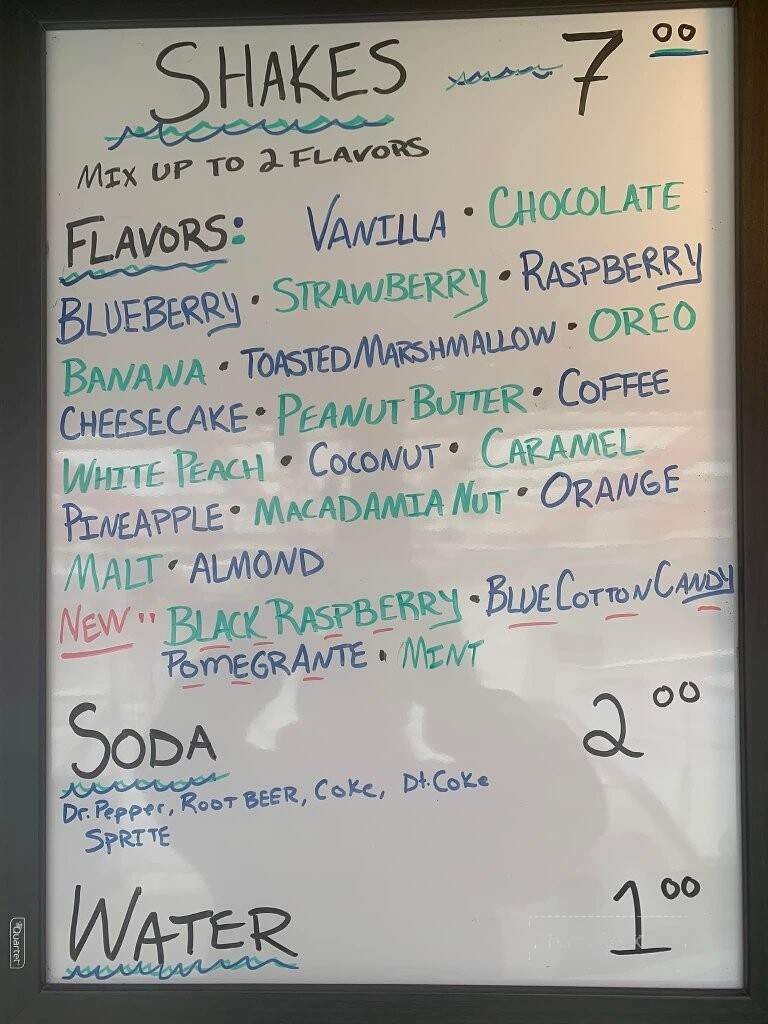 SHAKES 7 00
MIX UP TO 2 FLAVORS
FLAVORS: VANILLA • CHOCOLATE
BLUEBERRY • STRAWBERRY • RASPBERRY
BANANA • TOASTED MARSHMALLOW • OREO
CHEESECAKE • PEANUT BUTTER • COFFEE
WHITE PEACH • COCONUT • CARAMEL
PINEAPPLE • MACADAMIA NUT • ORANGE
MALT • ALMOND
NEW" BLACK RASPBERRY • BLUE COTTON CANDY
POMEGRANTE • MINT
SODA 2 00
Dr. Pepper, ROOT BEER, Coke, Dt. Coke
SPRITE
WATER 1 00
Quartet